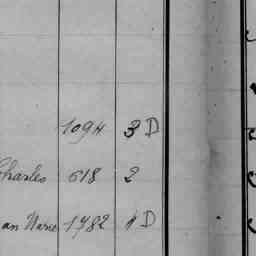 1094 3 D
Charles 618 2
an Marie 1782 4 D